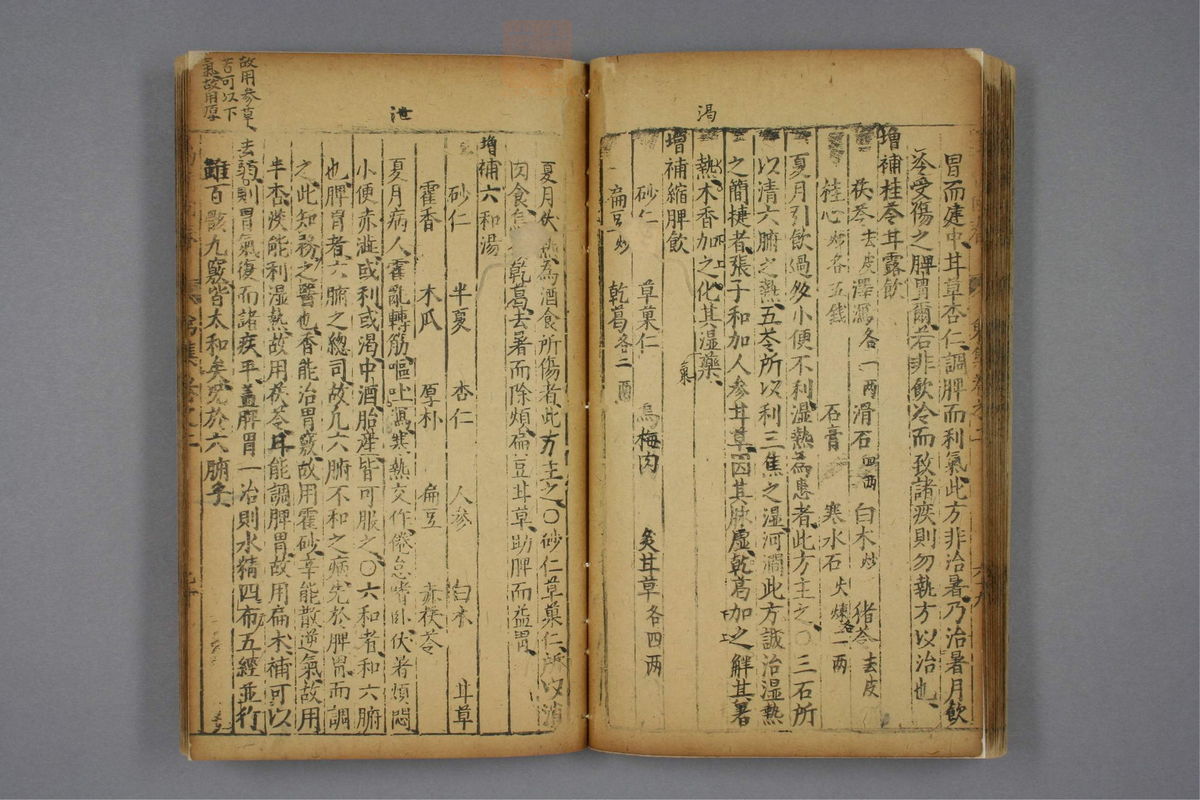 渴
冒而建中、甘草杏仁、調脾而利氣、此方非治暑、乃治暑月飲
冷受傷之脾胃爾、若非飲冷而致諸疾、則勿執方以治也、
增補桂苓甘露飲
茯苓去皮 澤瀉各一兩 滑石四兩 白朮炒 猪苓去皮
桂心炒各五錢 石膏 寒水石 火煉各一兩
夏月引飲過多、小便不利、濕熱為患者、此方主之、○三石所
以清六腑之熱、五苓所以利三焦之濕、河澗此方、誠治濕熱
之簡捷者、張子和加人參甘草、因其脉虛、乾葛加之、解其暑
熱、木香加之、化其濕藥、
氣
增補縮脾飲
砂仁 草菓仁 烏梅肉 炙甘草各四兩
扁豆炒 乾葛各二兩
泄
夏月伏熱、為酒食所傷者、此方主之、○砂仁草菓仁、所以消
肉食、乾葛去暑而除煩、扁豆甘草、助脾而益胃、
增補六和湯
砂仁 半夏 杏仁 人參 白朮 甘草
霍香 木瓜 厚朴 扁豆 赤茯苓
夏月病人、霍亂轉筋、嘔吐瀉、寒熱交作、倦怠嗜臥、伏暑煩悶
小便赤澁、或利或渴、中酒胎產、皆可服之、○六和者、和六腑
也、脾胃者、六腑之總司、故凡六腑不和之病、先於脾胃而調
之、此知務之醫也、香能治胃竅、故用霍砂、辛能散逆氣、故用
半杏、淡能利濕熱、故用茯苓、甘能調脾胃、故用扁朮、補可以
去弱、則胃氣復而諸疾平、蓋脾胃一治、則水精四布、五經並行
雖百骸九竅、皆太和矣、况於六腑矣
故用參草、
苦可以下
氣故用厚